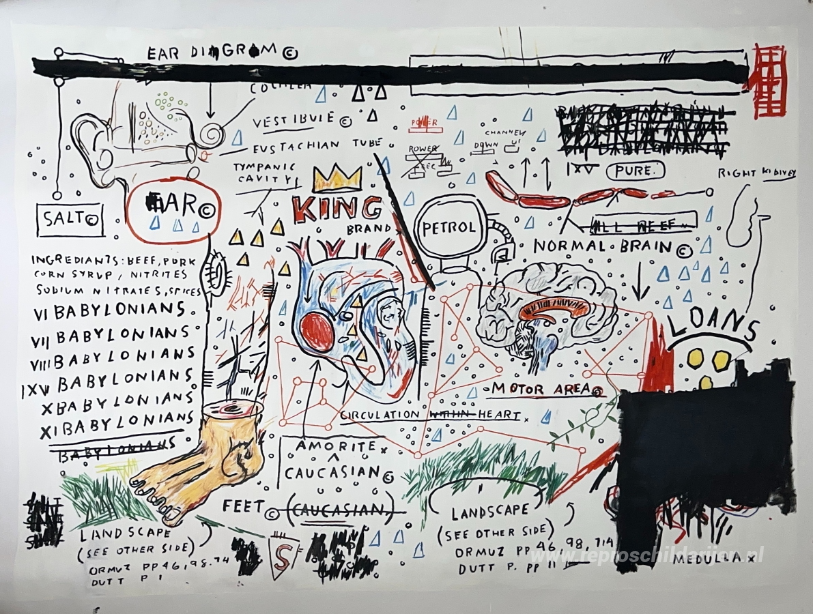 EAR DIAGRAM ©
VESTIBULE ©
EUSTACHIAN TUBE
TYMPANIC
CAVITY
EAR ©
SALT ©
KING
BRAND
POWER
POWER
CHANNEL
DOWN
PETROL
IXV PURE.
ALL BEEF
NORMAL BRAIN ©
RIGHT KIDNEY
INGREDIANTS: BEEF, PORK
CORN SYRUP, NITRITES
SODIUM NITRATES, SPICES
VI BABYLONIANS.
VII BABYLONIANS
VIII BABYLONIANS.
IXV BABYLONIANS
X BABYLONIANS
XI BABYLONIANS
BABYLONIANS
LOANS
MOTOR AREA ©
CIRCULATION WITHIN HEART.
AMORITE x
CAUCASIAN ©
FEET © (CAUCASIAN)
LANDSCAPE
(SEE OTHER SIDE)
ORMUZ PP 46, 98, 714
DUTT P 1
S
LANDSCAPE
(SEE OTHER SIDE)
ORMUZ PP 46, 98, 714
DUTT P. PP 11
MEDULLA x
www.reproschilderijen.nl